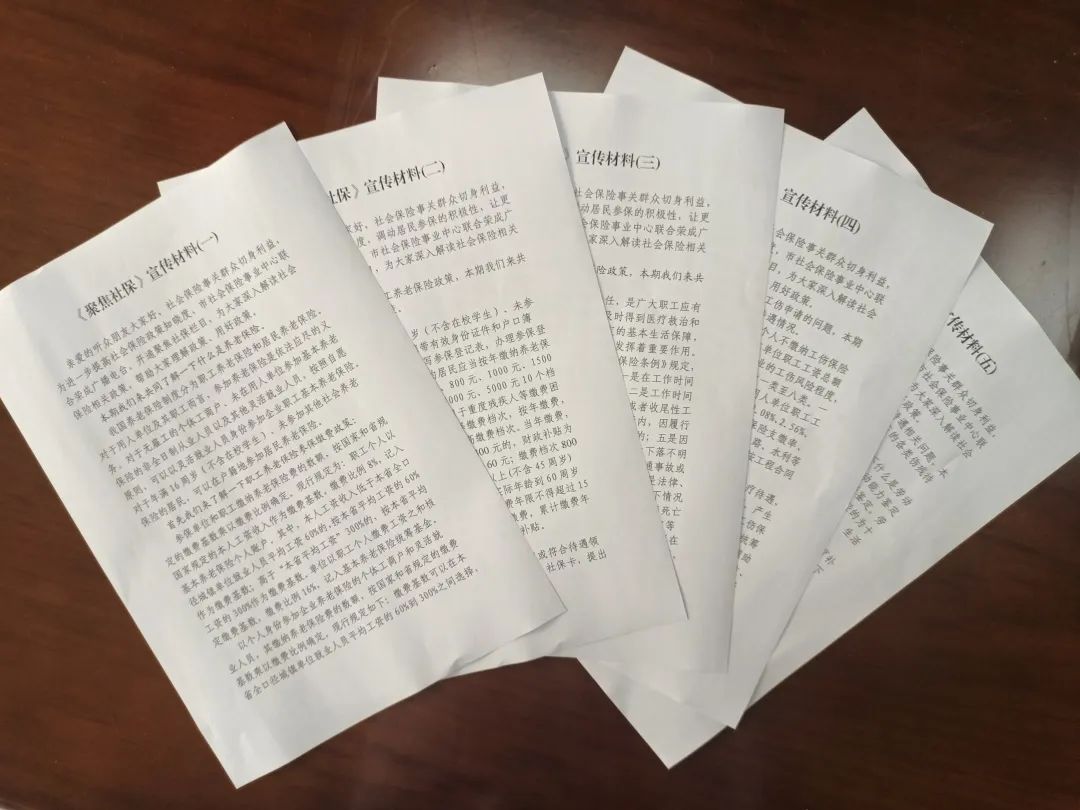 《聚焦社保》宣传材料(一)
亲爱的听众朋友大家好，社会保险事关群众切身利益，
为进一步提高社会保险政策知晓度，市社会保险事业中心联
合荣成广播电台，开通聚焦社保栏目，为大家深入解读社会
保险相关政策，帮助大家理解政策、用好政策。
本期我们来共同了解一下什么是养老保险。
我国养老保险制度分为职工养老保险和居民养老保险，
对于用人单位及其职工而言，参加养老保险是依法应尽的义
务，对于无雇工的个体工商户、未在用人单位参加基本养老
保险的非全日制从业人员以及其他灵活就业人员，按照自愿
原则，可以以灵活就业人员身份参加企业职工基本养老保险，
对于年满16周岁（不含在校学生），未参加其他社会养老
保险的居民，可以在户籍地参加居民养老保险。
首先我们来了解一下职工养老保险参保缴费政策：
参保单位和职工缴纳养老保险费的数额，按国家和省规
定的缴费基数乘以缴费比例确定。现行规定为：职工个人以
国家规定的本人工资收入作为缴费基数，缴费比例8%，记入
基本养老保险个人账户，其中，本人工资收入低于本省全口
径城镇单位就业人员平均工资60%的，按本省平均工资的60%
作为缴费基数；高于"本省平均工资"300%的，按本省平均
工资的300%作为缴费基数。单位以职工个人缴费工资之和核
定缴费基数，缴费比例16%，记入基本养老保险统筹基金。
以个人身份参加企业养老保险的个体工商户和灵活就
业人员，其缴纳养老保险费的数额，按国家和省规定的缴费
基数乘以缴费比例确定，现行规定如下：缴费基数可以在本
省全口径城镇单位就业人员平均工资的60%到300%之间选择，
社保》宣传材料(二)
家好，社会保险事关群众切身利益，
度，调动居民参保的积极性，让更
市社会保险事业中心联合荣成广
，为大家深入解读社会保险相关
工养老保险政策，本期我们来共
岁（不含在校学生）、未参
带有效身份证件和户口簿
写参保登记表，办理参保登
居民应当按年缴纳养老保
800元、1000元、1500
00元、5000元10个档
于重度残疾人等缴费困
缴费档次，按年缴费，
缴费档次，当年缴费，
00元的，财政补贴为
60元；缴费档次800
以上(不含45周岁)
际年龄到60周岁
费年限不得超过15
缴费，累计缴费年
补贴。
或符合待遇领
社保卡，提出
》宣传材料(三)
社会保险事关群众切身利益，
动居民参保的积极性，让更
会保险事业中心联合荣成广
家深入解读社会保险相关
险政策，本期我们来共
任，是广大职工应有
及时得到医疗救治和
的基本生活保障，
发挥着重要作用。
保险条例》规定，
一是在工作时间
二是工作时间
或者收尾性工
内，因履行
的；五是因
下落不明
通事故或
是法律、
下情况
死亡
等
宣传材料(四)
会保险事关群众切身利益，
，市社会保险事业中心联
目，为大家深入解读社会
用好政策。
工伤申请的问题，本期
遇情况。
个人不缴纳工伤保险
单位职工工资总额
处的工伤风险程度，
一类至八类。一
用人单位职工工
.08%、2.56%。
保险欠缴率、
路、水利等
按工程合同
疗待遇，
，产生
工伤保
统筹
宣传材料(五)
险事关群众切身利
市社会保险事业中心联
为大家深入解读社会
政策。
遇相关问题，本
的各类伤残待
什么是劳动
动能力鉴定
鉴定。劳
定的为十
生活